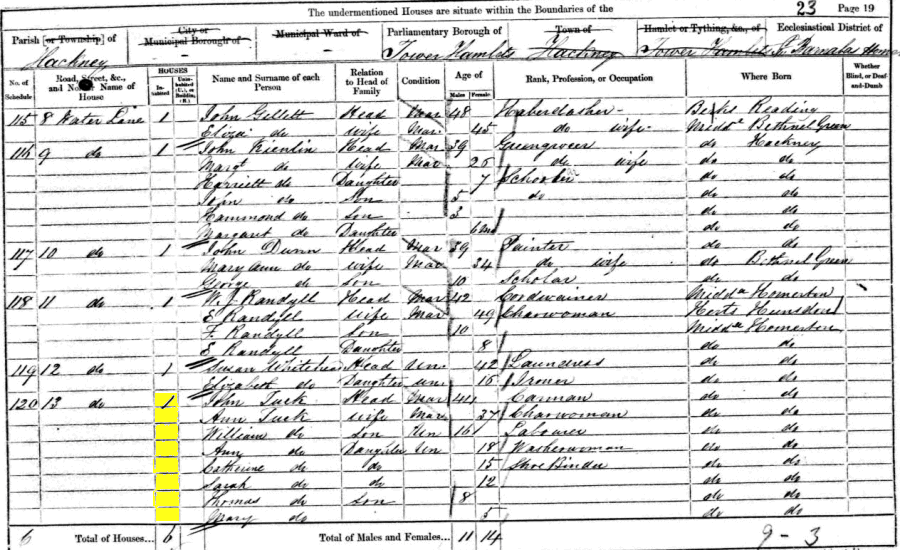 The undermentioned Houses are situate within the Boundaries of the 23 Page 19
Parish [or Township] of Hackney
City or Municipal Borough of
Municipal Ward of
Parliamentary Borough of Tower Hamlets
Town of Hackney
Hamlet or Tything, &c., of Tower Hamlets
Ecclesiastical District of St Barnabas
No. of Schedule
Road, Street, &c., and No. or Name of House
HOUSES
Inhabited
Uninhabited (U.), or Building (B.)
Name and Surname of each Person
Relation to Head of Family
Condition
Age of
Males Females
Rank, Profession, or Occupation
Where Born
Whether Blind, or Deaf-and-Dumb
115 8 Water Lane 1 John Gellett Head Mar 48 Haberdasher Berks Reading
Eliza do Wife Mar 45 do wife Middx Bethnel Green
116 9 do 1 John Head Mar 39 Greengrocer do Hackney
Margt do Wife Mar 26 do wife do do
Harriett do Daughter 7 Scholar do do
John do Son 5 do do do
Hammond do Son 3 do do
Margaret do Daughter 6m do do
117 10 do 1 John Dunn Head Mar 39 Painter do do
Mary Ann do Wife Mar 34 do wife do Bethnel Green
George do Son 10 Scholar do do
118 11 do 1 W. J. Randyll Head Mar 42 Cordwainer Middx Homerton
E Randyll Wife Mar 49 Charwoman Herts Hunsdon
F. Randyll Son 10 Middx Homerton
E Randyll Daughter 8 do do
119 12 do 1 Susan Head Un 42 Laundress do do
Elizabeth do Daughter Un 16 Ironer do do
120 13 do 1 John Tuck Head Mar 41 Carman do do
Ann Tuck Wife Mar 37 Charwoman do do
William do Son Un 16 Labourer do do
Ann do Daughter Un 18 Washerwoman do do
Catherine do do 15 Shoe Binder do do
Sarah do do 12 do do
Thomas do Son 8 do do
Mary do 5 do do
6 Total of Houses... 6 Total of Males and Females... 11 14 9 - 3